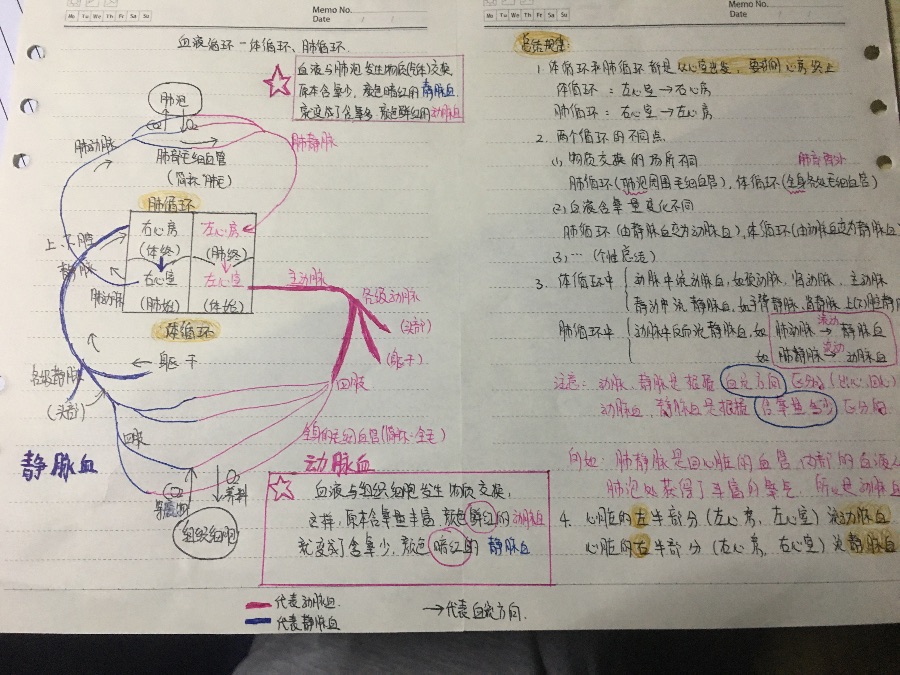 Memo No.
Mo Tu We Th Fr Sa Su
Date / /
血液循环－体循环、肺循环.
血液与肺泡发生物质(气体)交换,
原本含氧少,颜色暗红的静脉血
就变成了含氧多,颜色鲜红的动脉血
肺泡
CO₂ O₂
肺动脉
肺部毛细血管
肺静脉
(简称"肺毛")
肺循环
右心房
左心房
上.下腔
静脉
(体终)
(肺终)
右心室
左心室
主动脉
肺动脉
(肺始)
(体始)
各级动脉
(头部)
体循环
躯干
(躯干)
各级静脉
四肢
(头部)
全身的毛细血管(简称:全毛)
四肢
静脉血
动脉血
CO₂
O₂
养料
组织细胞
血液与组织细胞发生物质交换,
这样,原本含氧量丰富,颜色鲜红的动脉血
就变成了含氧少,颜色暗红的静脉血
代表动脉血.
代表静脉血
→代表血流方向.
Memo No.
Mo Tu We Th Fr Sa Su
Date / /
总结规律:
1. 体循环和肺循环都是从心室出发,要到心房终止
体循环:左心室→右心房
肺循环:右心室→左心房
2. 两个循环的不同点.
(1) 物质交换的场所不同
肺部以外
肺循环(肺泡周围毛细血管),体循环(全身各处毛细血管)
(2) 血液含氧量变化不同
肺循环(由静脉血变为动脉血),体循环(由动脉血变为静脉血
(3) …
3. 体循环中 动脉中流动脉血,如颈动脉,肾动脉,主动脉
静脉中流静脉血,如 静脉,肾静脉,上(下)腔静脉
肺循环中 动脉中反而流静脉血,如 肺动脉 流动→ 静脉血
如 肺静脉 流动→ 动脉血
注意:动脉、静脉是根据血流方向区分的(出心,回心)
动脉血,静脉血是根据含氧量多少区分的.
例如:肺静脉是回心脏的血管,内部的血液从
肺泡处获得了丰富的氧气,所以是动脉血
4. 心脏的左半部分(左心房,左心室)流动脉血
心脏的右半部分(右心房,右心室)流静脉血